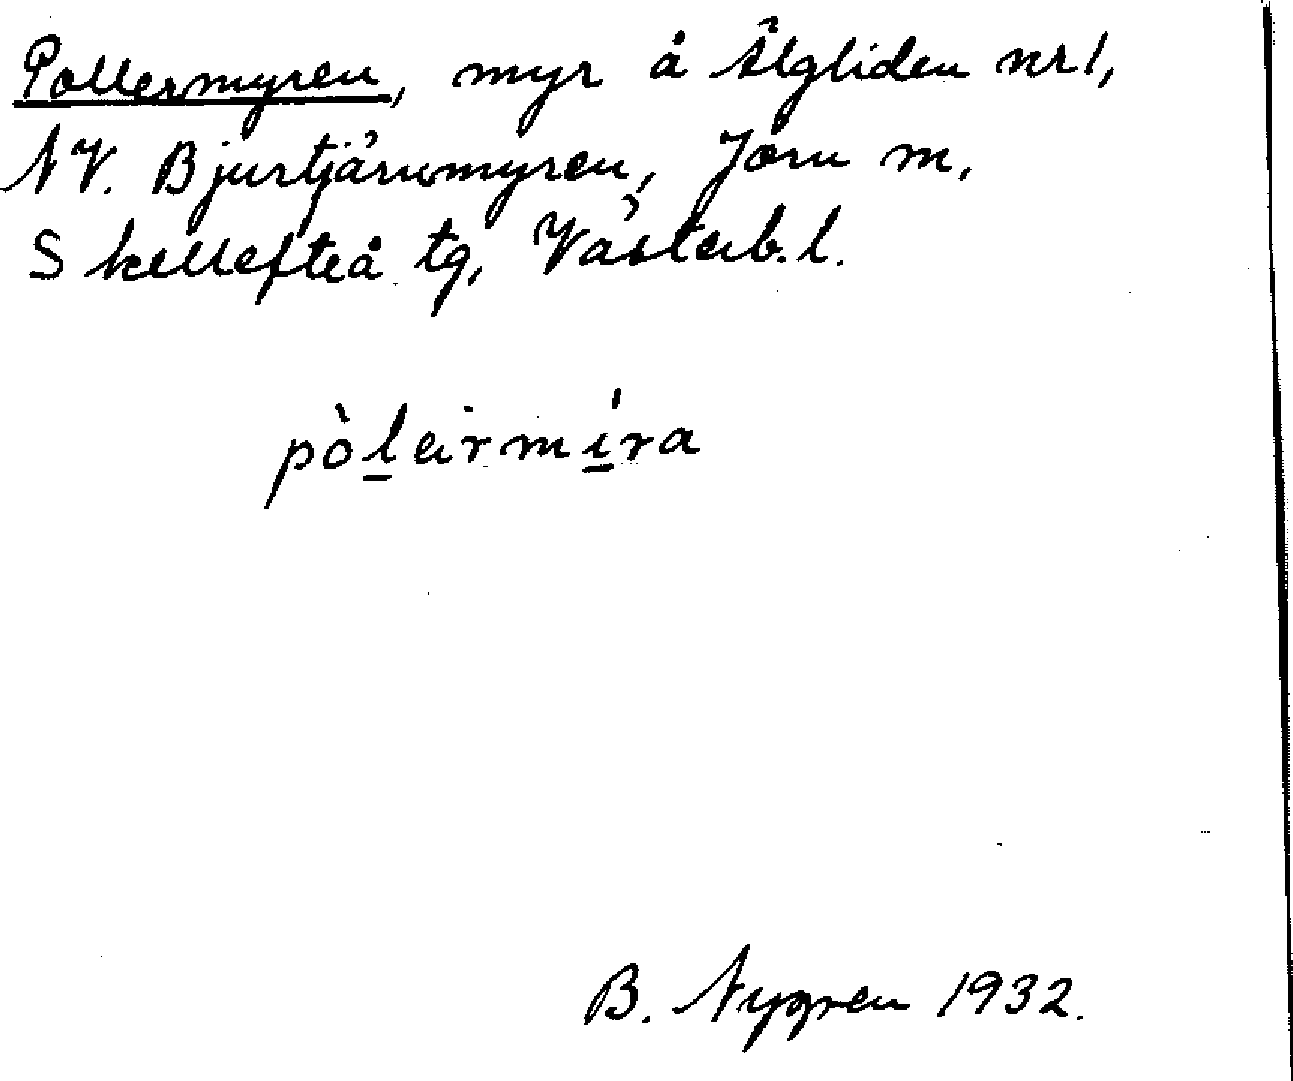 Pollermyren, myr å Älgliden nr 1,
NV. Bjurtjärnmyren, Jörn sn,
Skellefteå tg, Västerb. l.
pòḻermí̱ra
B. Nygren 1932.